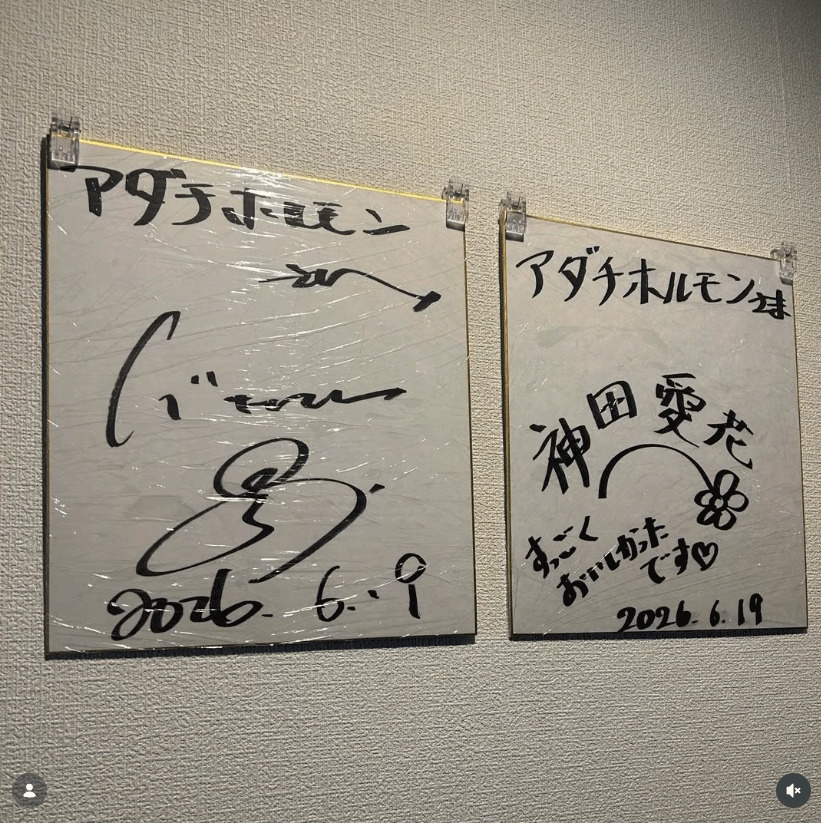 アダチホルモン
さん
2026. 6. 19
アダチホルモンさま
神田愛花
すっごく
おいしかった
です♡
2026. 6. 19